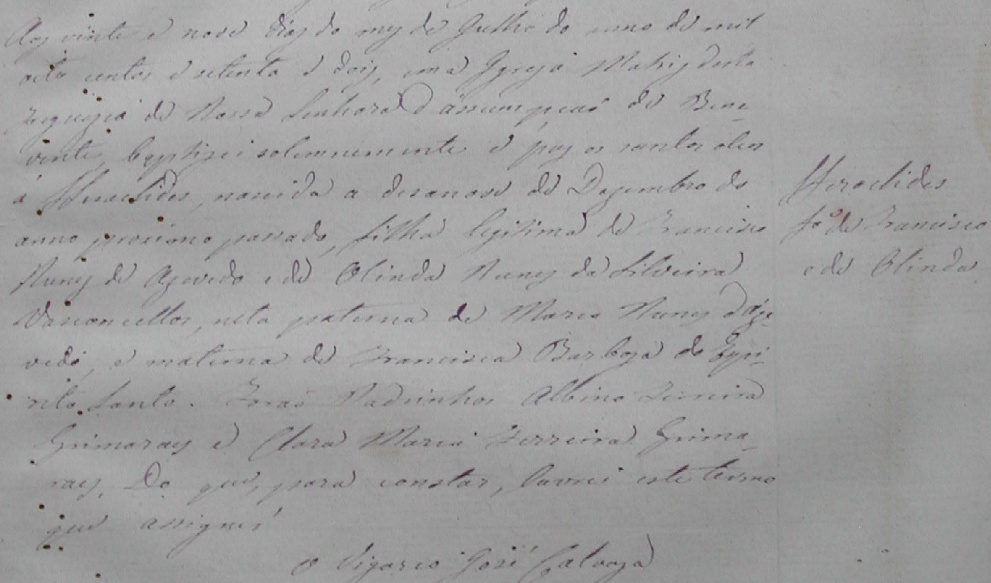 Aos vinte e nove dias do mez de Julho do anno de mil
oito centos e setenta e dois, em a Igreja Matriz desta
freguezia de Nossa Senhora d'Assumpçaõ de Bene
vente, baptizei solemnemente e puz os santos oleos
á Heraclides, nascida a desanove de Dezembro do
anno proximo passado, filha legitima de Francisco
Nunes de Azevedo e de Olinda Nunes da Silveira
Vasconcellos, neta paterna de Maria Nunes d'Aze-
vedo, e materna de Francisca Barboza do Espi-
rito Santo. Foraõ Padrinhos Albino Ferreira
e Clara Maria Ferreira
Do que, para constar, lavrei este termo
que assignei
O Vigario José
Heraclides
fª de Francisco
e de Olinda